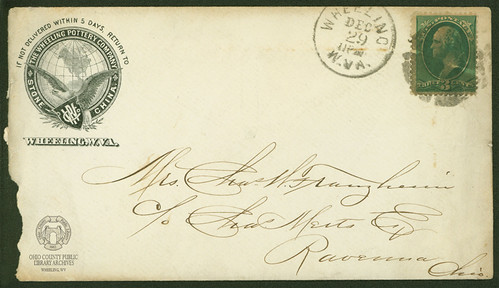 IF NOT DELIVERED WITHIN 5 DAYS, RETURN TO
THE WHEELING POTTERY COMPANY
STONE CHINA
WHEELING, W.VA.
WHEELING
DEC
29
W.VA.
3
Mrs. Chas. W. Franzheim
c/o Chas Merts Esq
Ravenna
Ohio.
OHIO COUNTY PUBLIC
LIBRARY ARCHIVES
WHEELING, WV